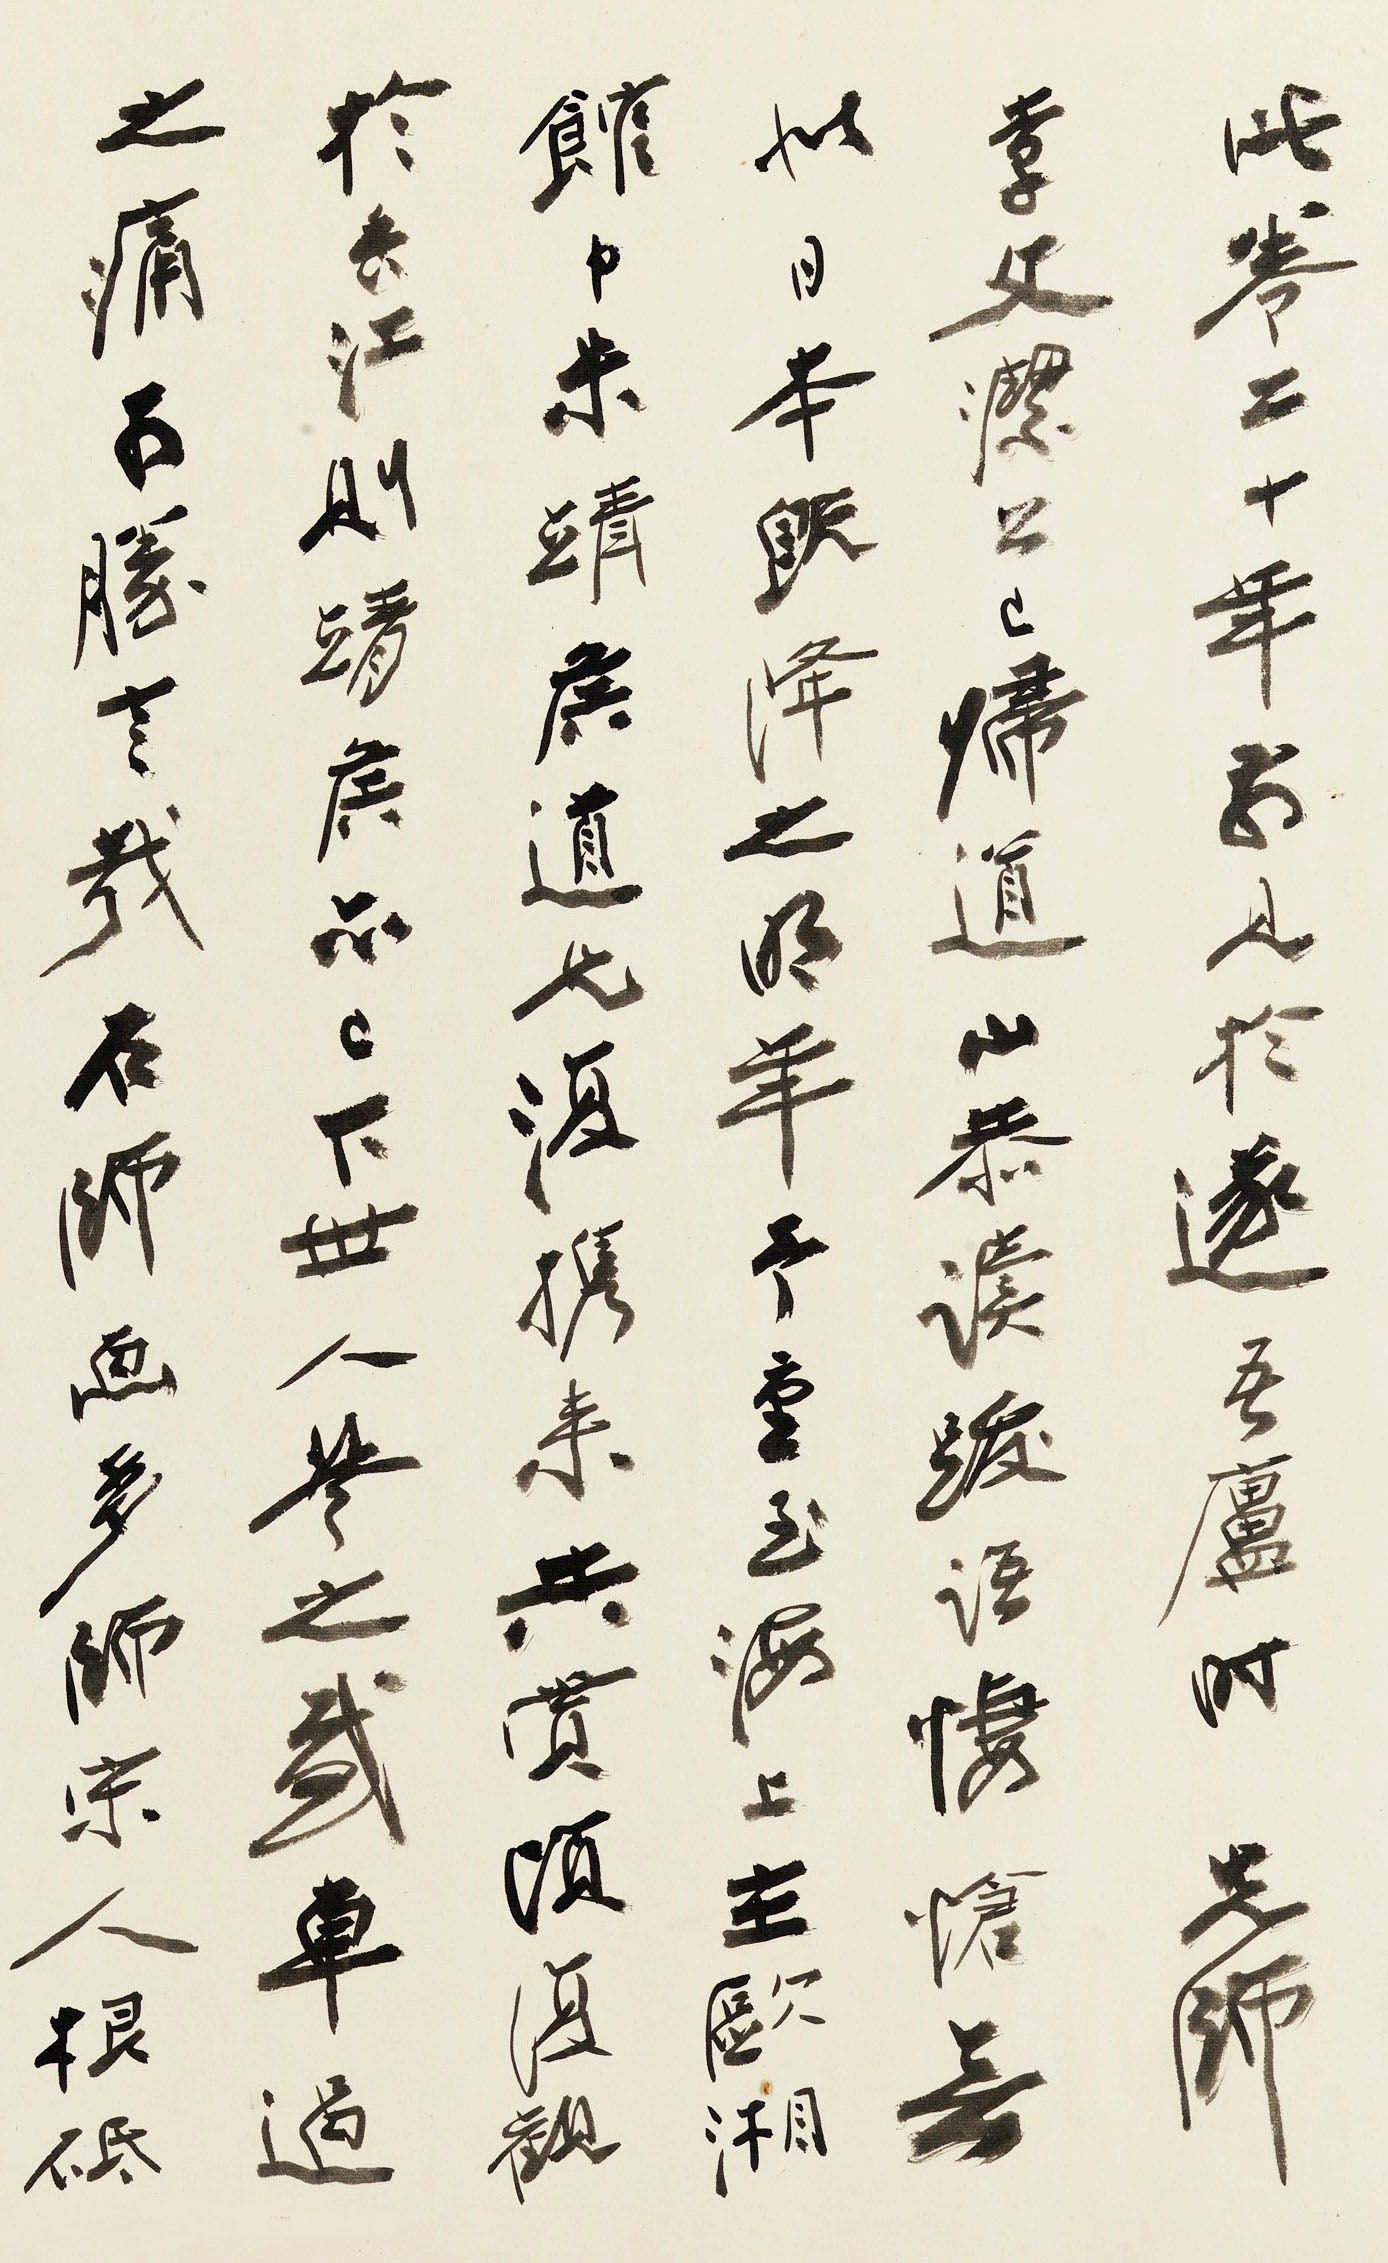 此卷二十年前見於邃吾廬时 先師
李文潔公已歸道山恭讀跋語悽愴無
似日本既降之明年予重至海上主歐湘
館中朱靖侯道兄復携来共賞頃復觀
於長江則靖侯亦已下世人琴之感車過
之痛可勝言哉石師画多師宋人根砥